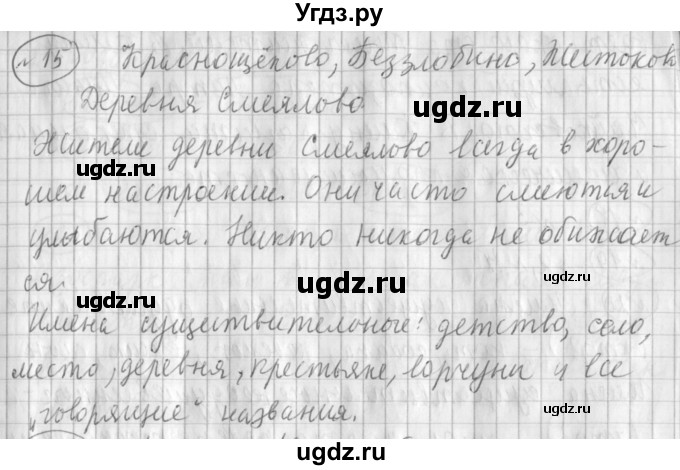 Угдз.ру
№ 15 Краснощёково, Беззлобино, Жестоков
Деревня Смеялово
ugdz.ru
Жители деревни Смеялово всегда в хоро-
ugdz.ru ugdz.ru
шем настроении. Они часто смеются и
улыбаются. Никто никогда не обижает
ugdz.ru ugdz.ru
ся.
ugdz.ru
Имена существительные: детство, село,
место, деревня, крестьяне, ворчуны и все
ugdz.ru
„говорящие“ названия.
ugdz.ru
ugdz.ru